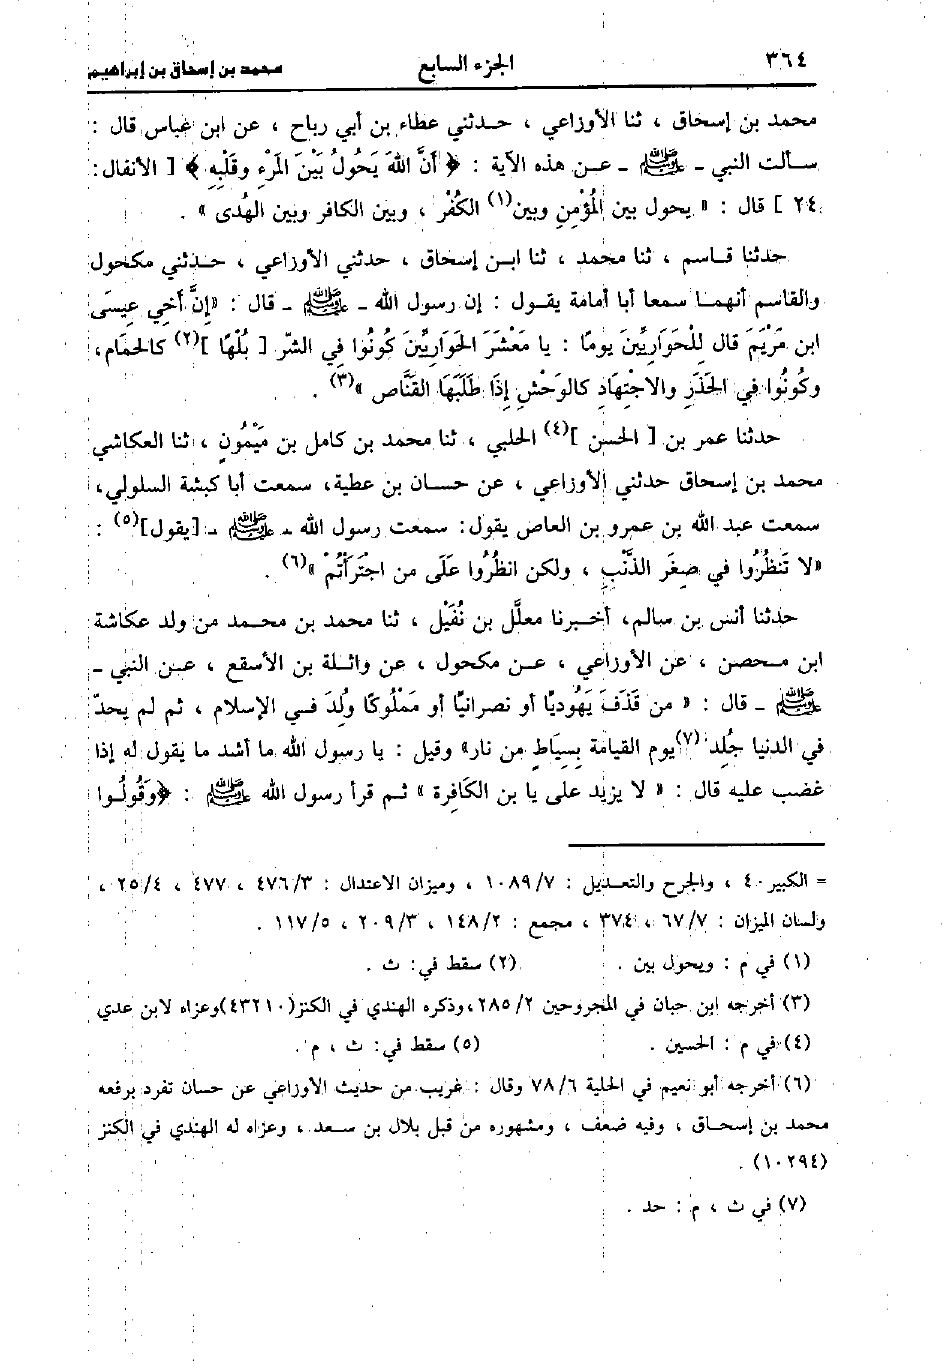 ٣٦٤ الجزء السابع محمد بن إسحاق بن إبراهيم
محمد بن إسحاق ، ثنا الأوزاعي ، حدثني عطاء بن أبي رباح ، عن ابن عباس قال :
سألت النبي ـ ﷺ ـ عن هذه الآية : ﴿ أَنَّ اللهَ يَحُولُ بَيْنَ المَرْءِ وقَلْبِهِ ﴾ [ الأنفال :
٢٤ ] قال : « يحول بين المُؤْمنِ وبين(١) الكُفْر ، وبين الكافر وبين الهُدى » .
حدثنا قاسم ، ثنا محمد ، ثنا ابن إسحاق ، حدثني الأوزاعي ، حدثني مكحول
والقاسم أنهما سمعا أبا أمامة يقول : إن رسول الله ـ ﷺ ـ قال : «إنَّ أَخِي عِيسَى
ابن مَرْيَمَ قال لِلْحَوَاريِّينَ يومًا : يا مَعْشَرَ الحَوَارِيِّينَ كُونُوا فِي الشّر [ بُلْهًا ](٢) كالحمَام،
وكُونُوا في الحَذَرِ والاجْتِهَادِ كالوَحْشِ إذَا طَلَبَهَا القَنَّاص »(٣) .
حدثنا عمر بن [ الحسن ](٤) الحلبي ، ثنا محمد بن كامل بن مَيْمُونٍ ، ثنا العكاشي
محمد بن إسحاق حدثني الأوزاعي ، عن حسان بن عطية، سمعت أبا كبشة السلولي،
سمعت عبد الله بن عمرو بن العاص يقول: سمعت رسول الله ـ ﷺ ـ [يقول](٥) :
«لا تَنظُرُوا في صِغَر الذَّنْبِ ، ولكن انظُرُوا عَلَى من اجتَرَأتُمْ »(٦) .
حدثنا أنس بن سالم، أخبرنا معلَّل بن نُفَيْل ، ثنا محمد بن محمد من ولد عكاشة
ابن محصن ، عن الأوزاعي ، عن مكحول ، عن واثلة بن الأسقع ، عن النبي ـ
ﷺ ـ قال : « من قَذَفَ يَهُوديًا أو نصرانيًا أو مَمْلُوكًا وُلِدَ في الإسلام ، ثم لم يحدّ
في الدنيا جُلِد (٧)يوم القيامة بِسِيَاطٍ من نار» وقيل : يا رسول الله ما أشد ما يقول له إذا
غضب عليه قال : « لا يزيد على يا بن الكَافِرة » ثم قرأ رسول الله ﷺ : ﴿وَقُولُوا
= الكبير ٤٠ ، والجرح والتعديل : ١٠٨٩/٧ ، وميزان الاعتدال : ٤٧٦/٣ ، ٤٧٧ ، ٢٥/٤ ،
ولسان الميزان : ٦٧/٧ ، ٣٧٤ ، مجمع : ١٤٨/٢ ، ٢٠٩/٣ ، ١١٧/٥ .
(١) في م : ويحول بين . (٢) سقط في: ث .
(٣) أخرجه ابن حبان في المجروحين ٢٨٥/٢، وذكره الهندي في الكنز(٤٣٢١٠)وعزاه لابن عدي
(٤) في م : الحسين . (٥) سقط في: ث ، م .
(٦) أخرجه أبو نعيم في الحلية ٧٨/٦ وقال : غريب من حديث الأوزاعي عن حسان تفرد برفعه
محمد بن إسحاق ، وفيه ضعف ، ومشهوره من قبل بلال بن سعد ، وعزاه له الهندي في الكنز
(١٠٢٩٤) .
(٧) في ث ، م : حد .